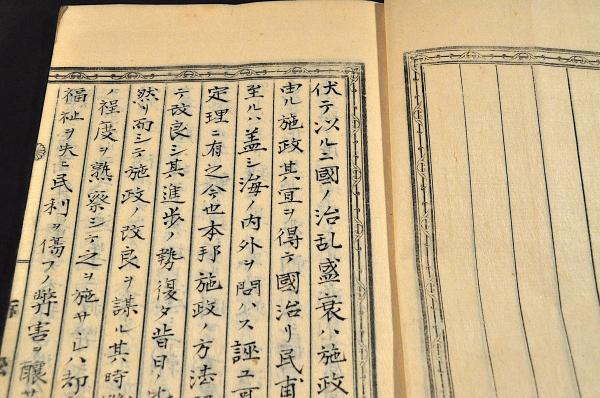 伏テ以ルニ國ノ治乱盛衰ハ施政
由ル施政其冝ヲ得テ國治リ民甫
至ルハ盖シ海ノ内外ヲ問ハス誣ユ可
定理ニ有之今也本邦施政ノ方法
テ改良シ其進歩ノ勢復タ昔日ノ
然リ而シテ施政ノ改良ヲ謀ル其時
ノ程度ヲ熟察シテ之ヲ施サヾレハ却
福祉ヲ失ヒ民利ヲ傷フノ弊害ヲ醸サ